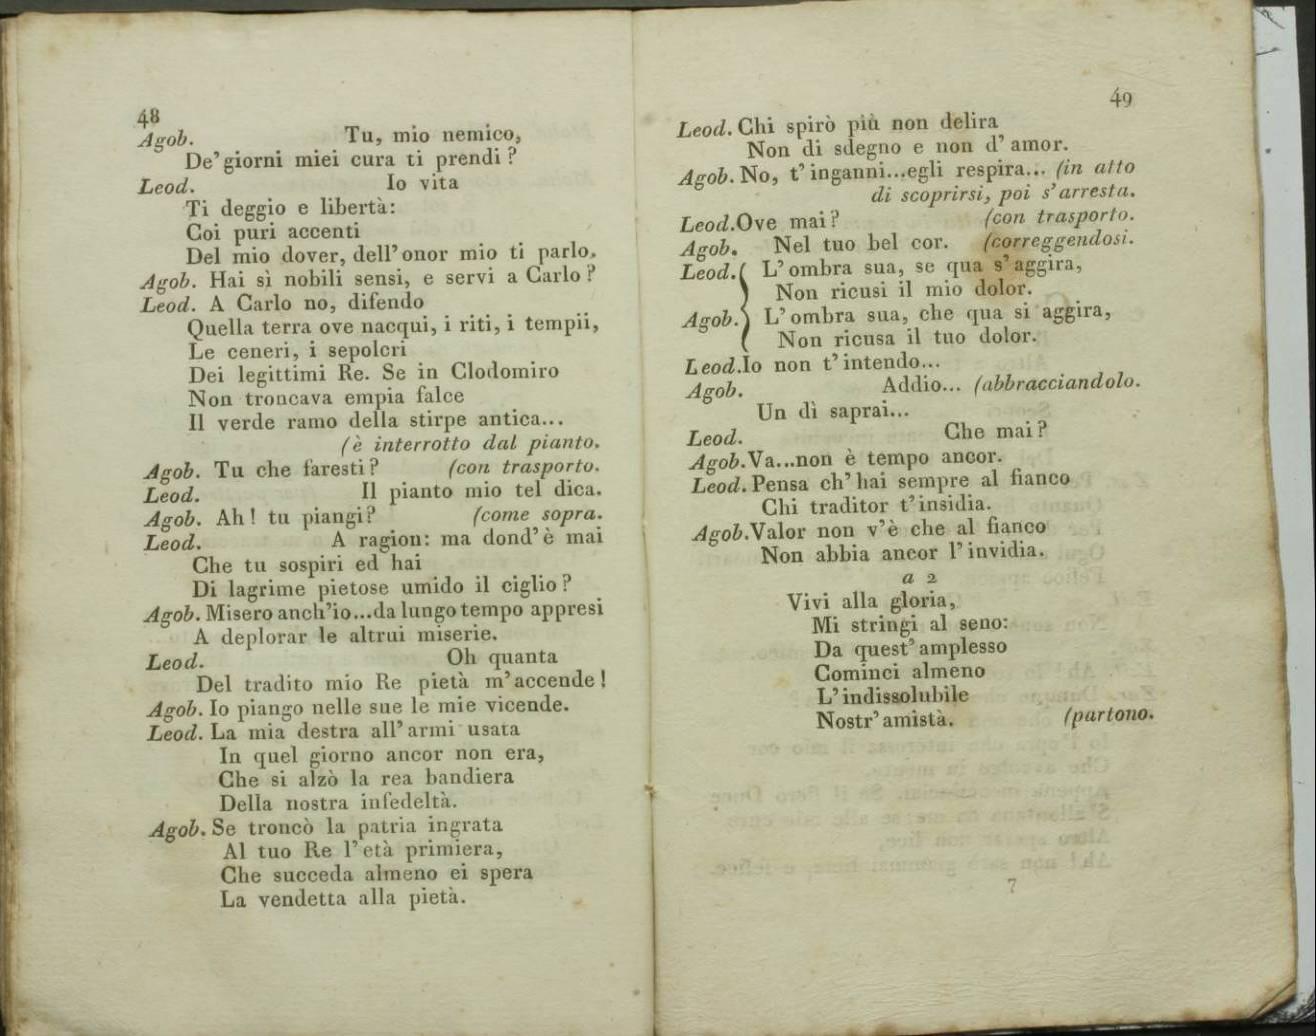 48
Agob. Tu, mio nemico,
De' giorni miei cura ti prendi?
Leod. Io vita
Ti deggio e libertà:
Coi puri accenti
Del mio dover, dell' onor mio ti parlo.
Agob. Hai sì nobili sensi, e servi a Carlo?
Leod. A Carlo no, difendo
Quella terra ove nacqui, i riti, i tempii,
Le ceneri, i sepolcri
Dei legittimi Re. Se in Clodomiro
Non troncava empia falce
Il verde ramo della stirpe antica...
(è interrotto dal pianto.
Agob. Tu che faresti? (con trasporto.
Leod. Il pianto mio tel dica.
Agob. Ah! tu piangi? (come sopra.
Leod. A ragion: ma dond' è mai
Che tu sospiri ed hai
Di lagrime pietose umido il ciglio?
Agob. Misero anch'io...da lungo tempo appresi
A deplorar le altrui miserie.
Leod. Oh quanta
Del tradito mio Re pietà m' accende!
Agob. Io piango nelle sue le mie vicende.
Leod. La mia destra all' armi usata
In quel giorno ancor non era,
Che si alzò la rea bandiera
Della nostra infedeltà.
Agob. Se troncò la patria ingrata
Al tuo Re l' età primiera,
Che succeda almeno ei spera
La vendetta alla pietà.
49
Leod. Chi spirò più non delira
Non di sdegno e non d' amor.
Agob. No, t' inganni...egli respira... (in atto
di scoprirsi, poi s' arresta.
Leod. Ove mai? (con trasporto.
Agob. Nel tuo bel cor. (correggendosi.
Leod. L' ombra sua, se qua s' aggira,
Non ricusi il mio dolor.
Agob. L' ombra sua, che qua si aggira,
Non ricusa il tuo dolor.
Leod. Io non t' intendo...
Agob. Addio... (abbracciandolo.
Un dì saprai...
Leod. Che mai?
Agob. Va...non è tempo ancor.
Leod. Pensa ch' hai sempre al fianco
Chi traditor t' insidia.
Agob. Valor non v' è che al fianco
Non abbia ancor l' invidia.
a 2
Vivi alla gloria,
Mi stringi al seno:
Da quest' amplesso
Cominci almeno
L' indissolubile
Nostr' amistà. (partono.
7